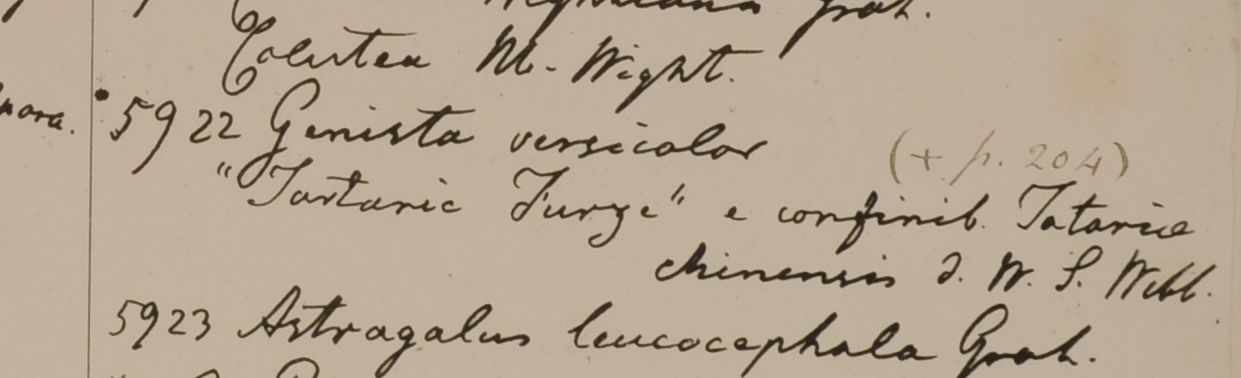 Grah.
Colutea M. Wight.
pora.
5922 Genista versicolor
(+ p. 204)
"Tartaric Furze" e confinib. Tatariæ
chinensis d. W. S. Webb.
5923 Astragalus leucocephala Grah.